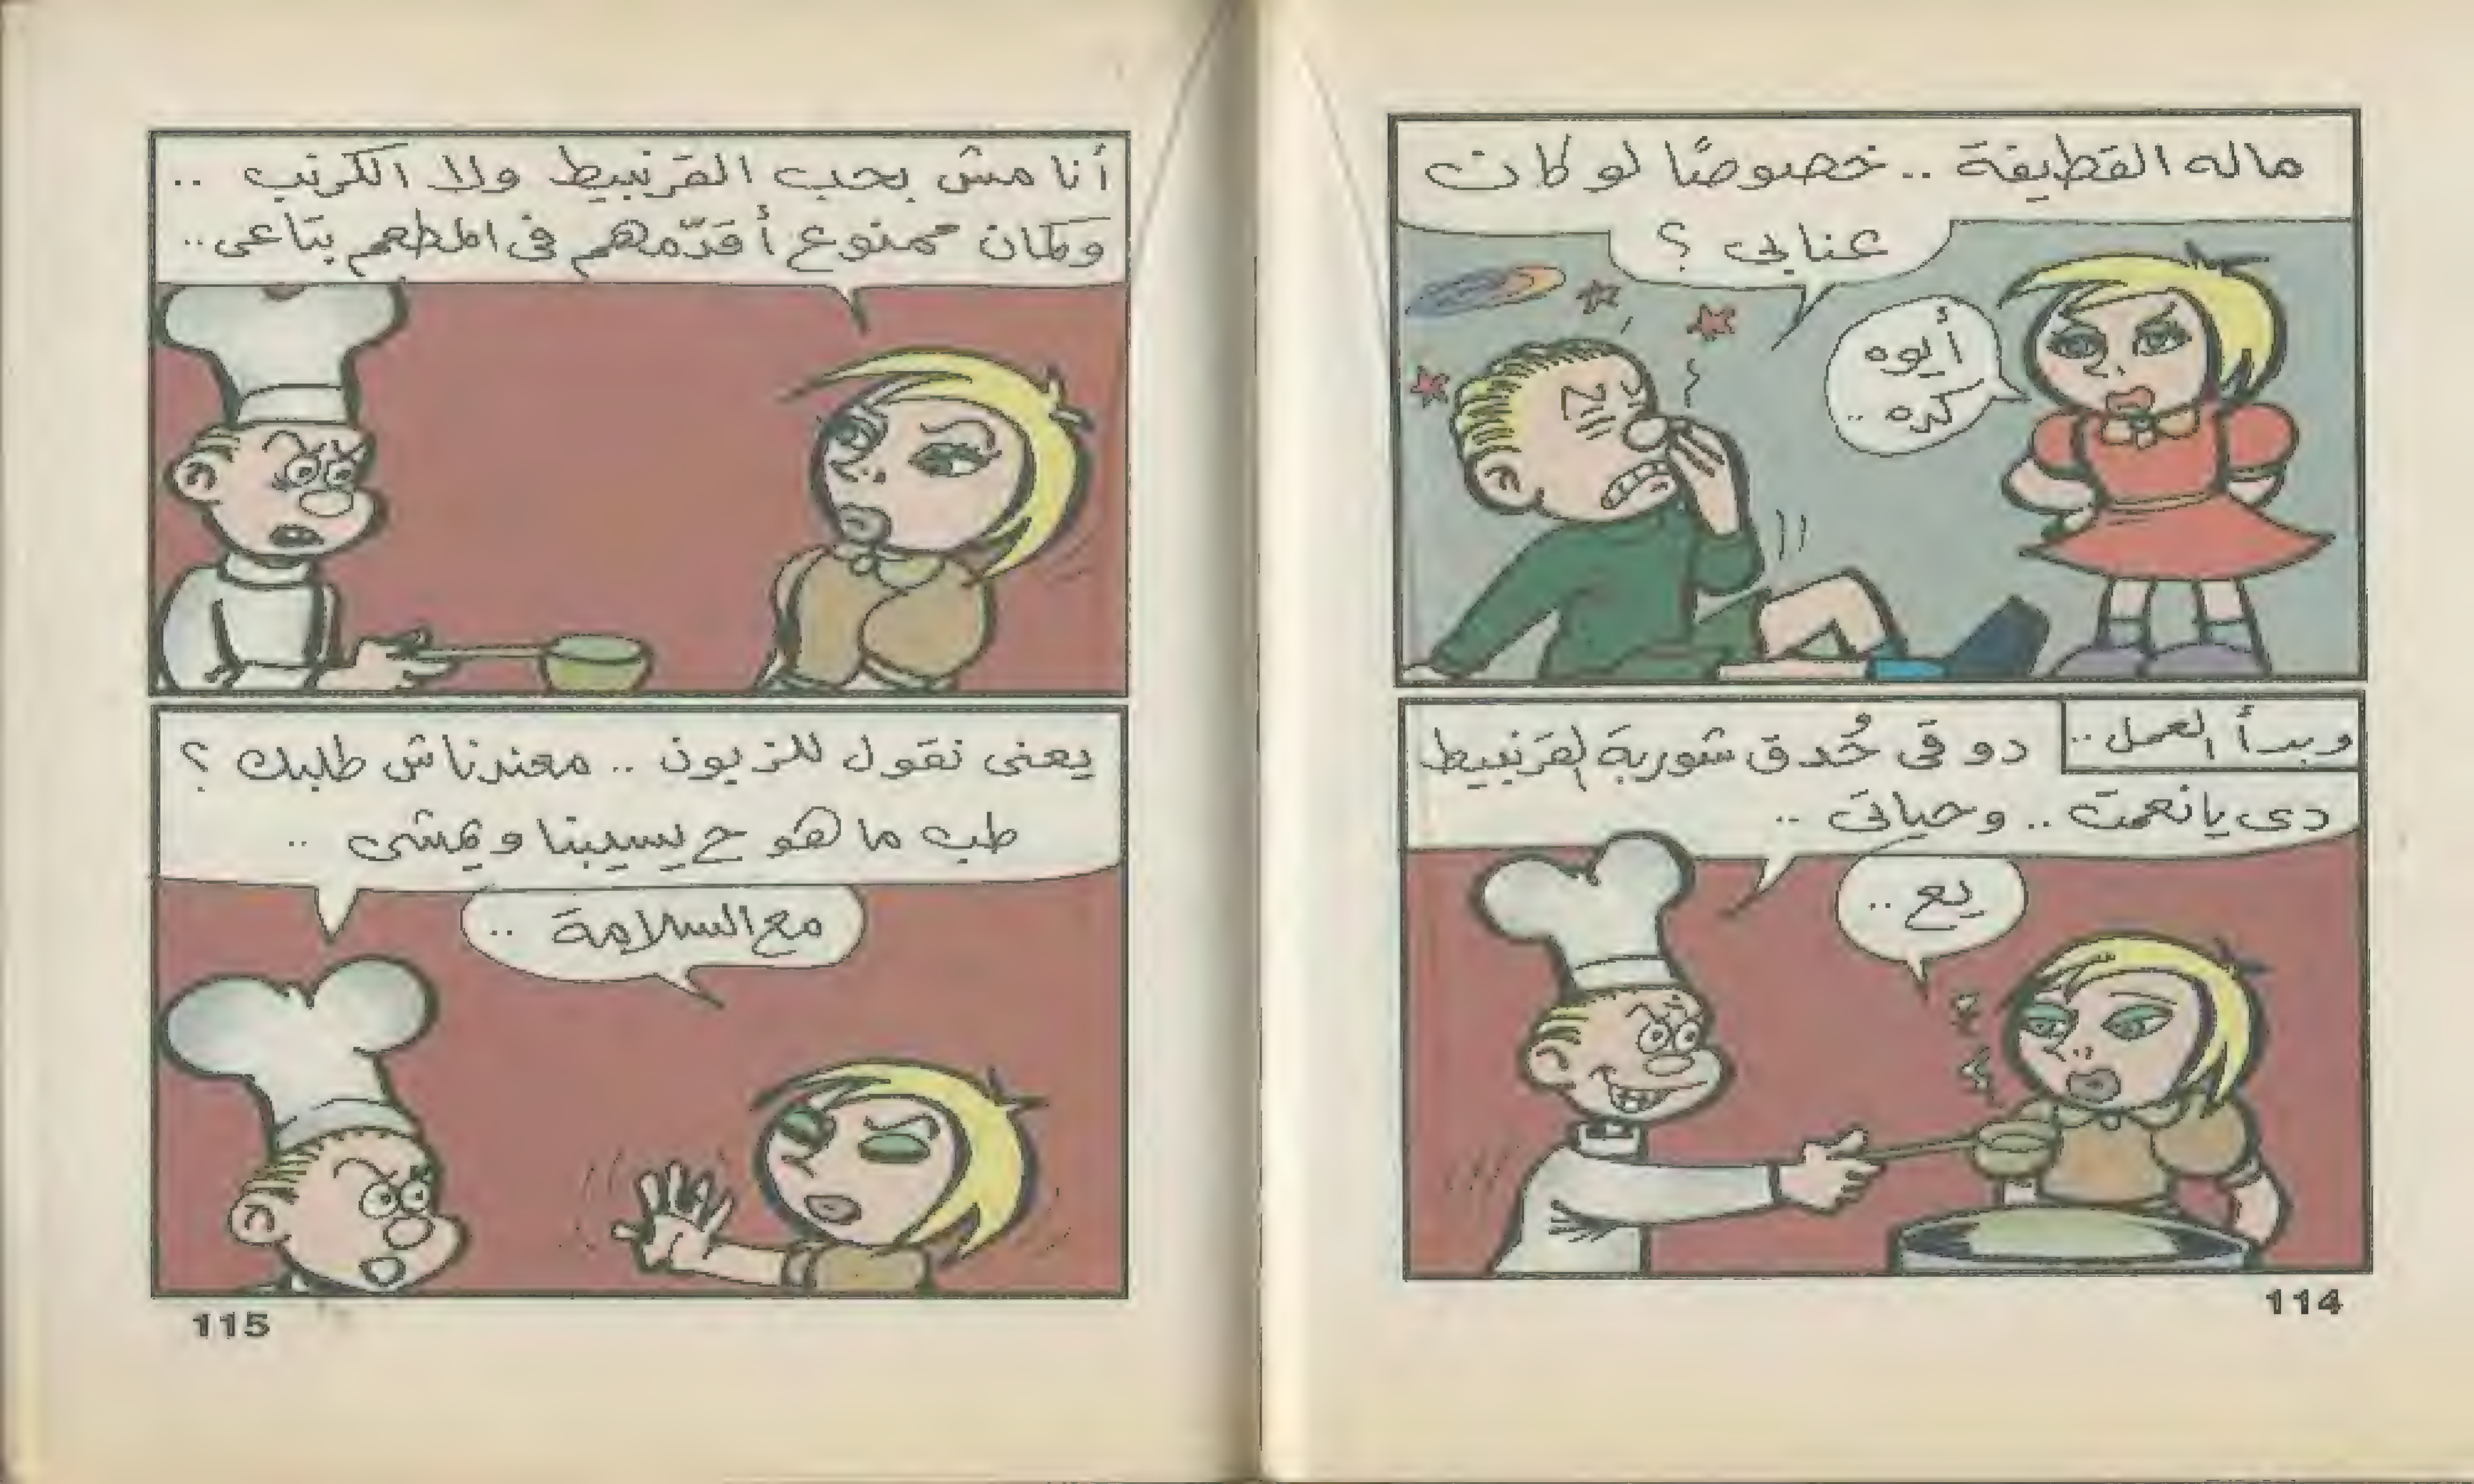 ماله القطيفة .. خصوصًا لو كان
عنابى ؟
أيوه
كده ..
وبدأ العمل ..
دوقى حُدق شوربة القرنبيط
دى يا نعمت .. وحياتى ..
يع ..
114
أنا مش بحب القرنبيط ولا الكرنب ..
وكمان ممنوع أقدّمهم فى المطعم بتاعى ..
يعنى نقول للزبون .. معندناش طلبك ؟
طب ما هو ح يسيبنا ويمشى ..
مع السلامة ..
115